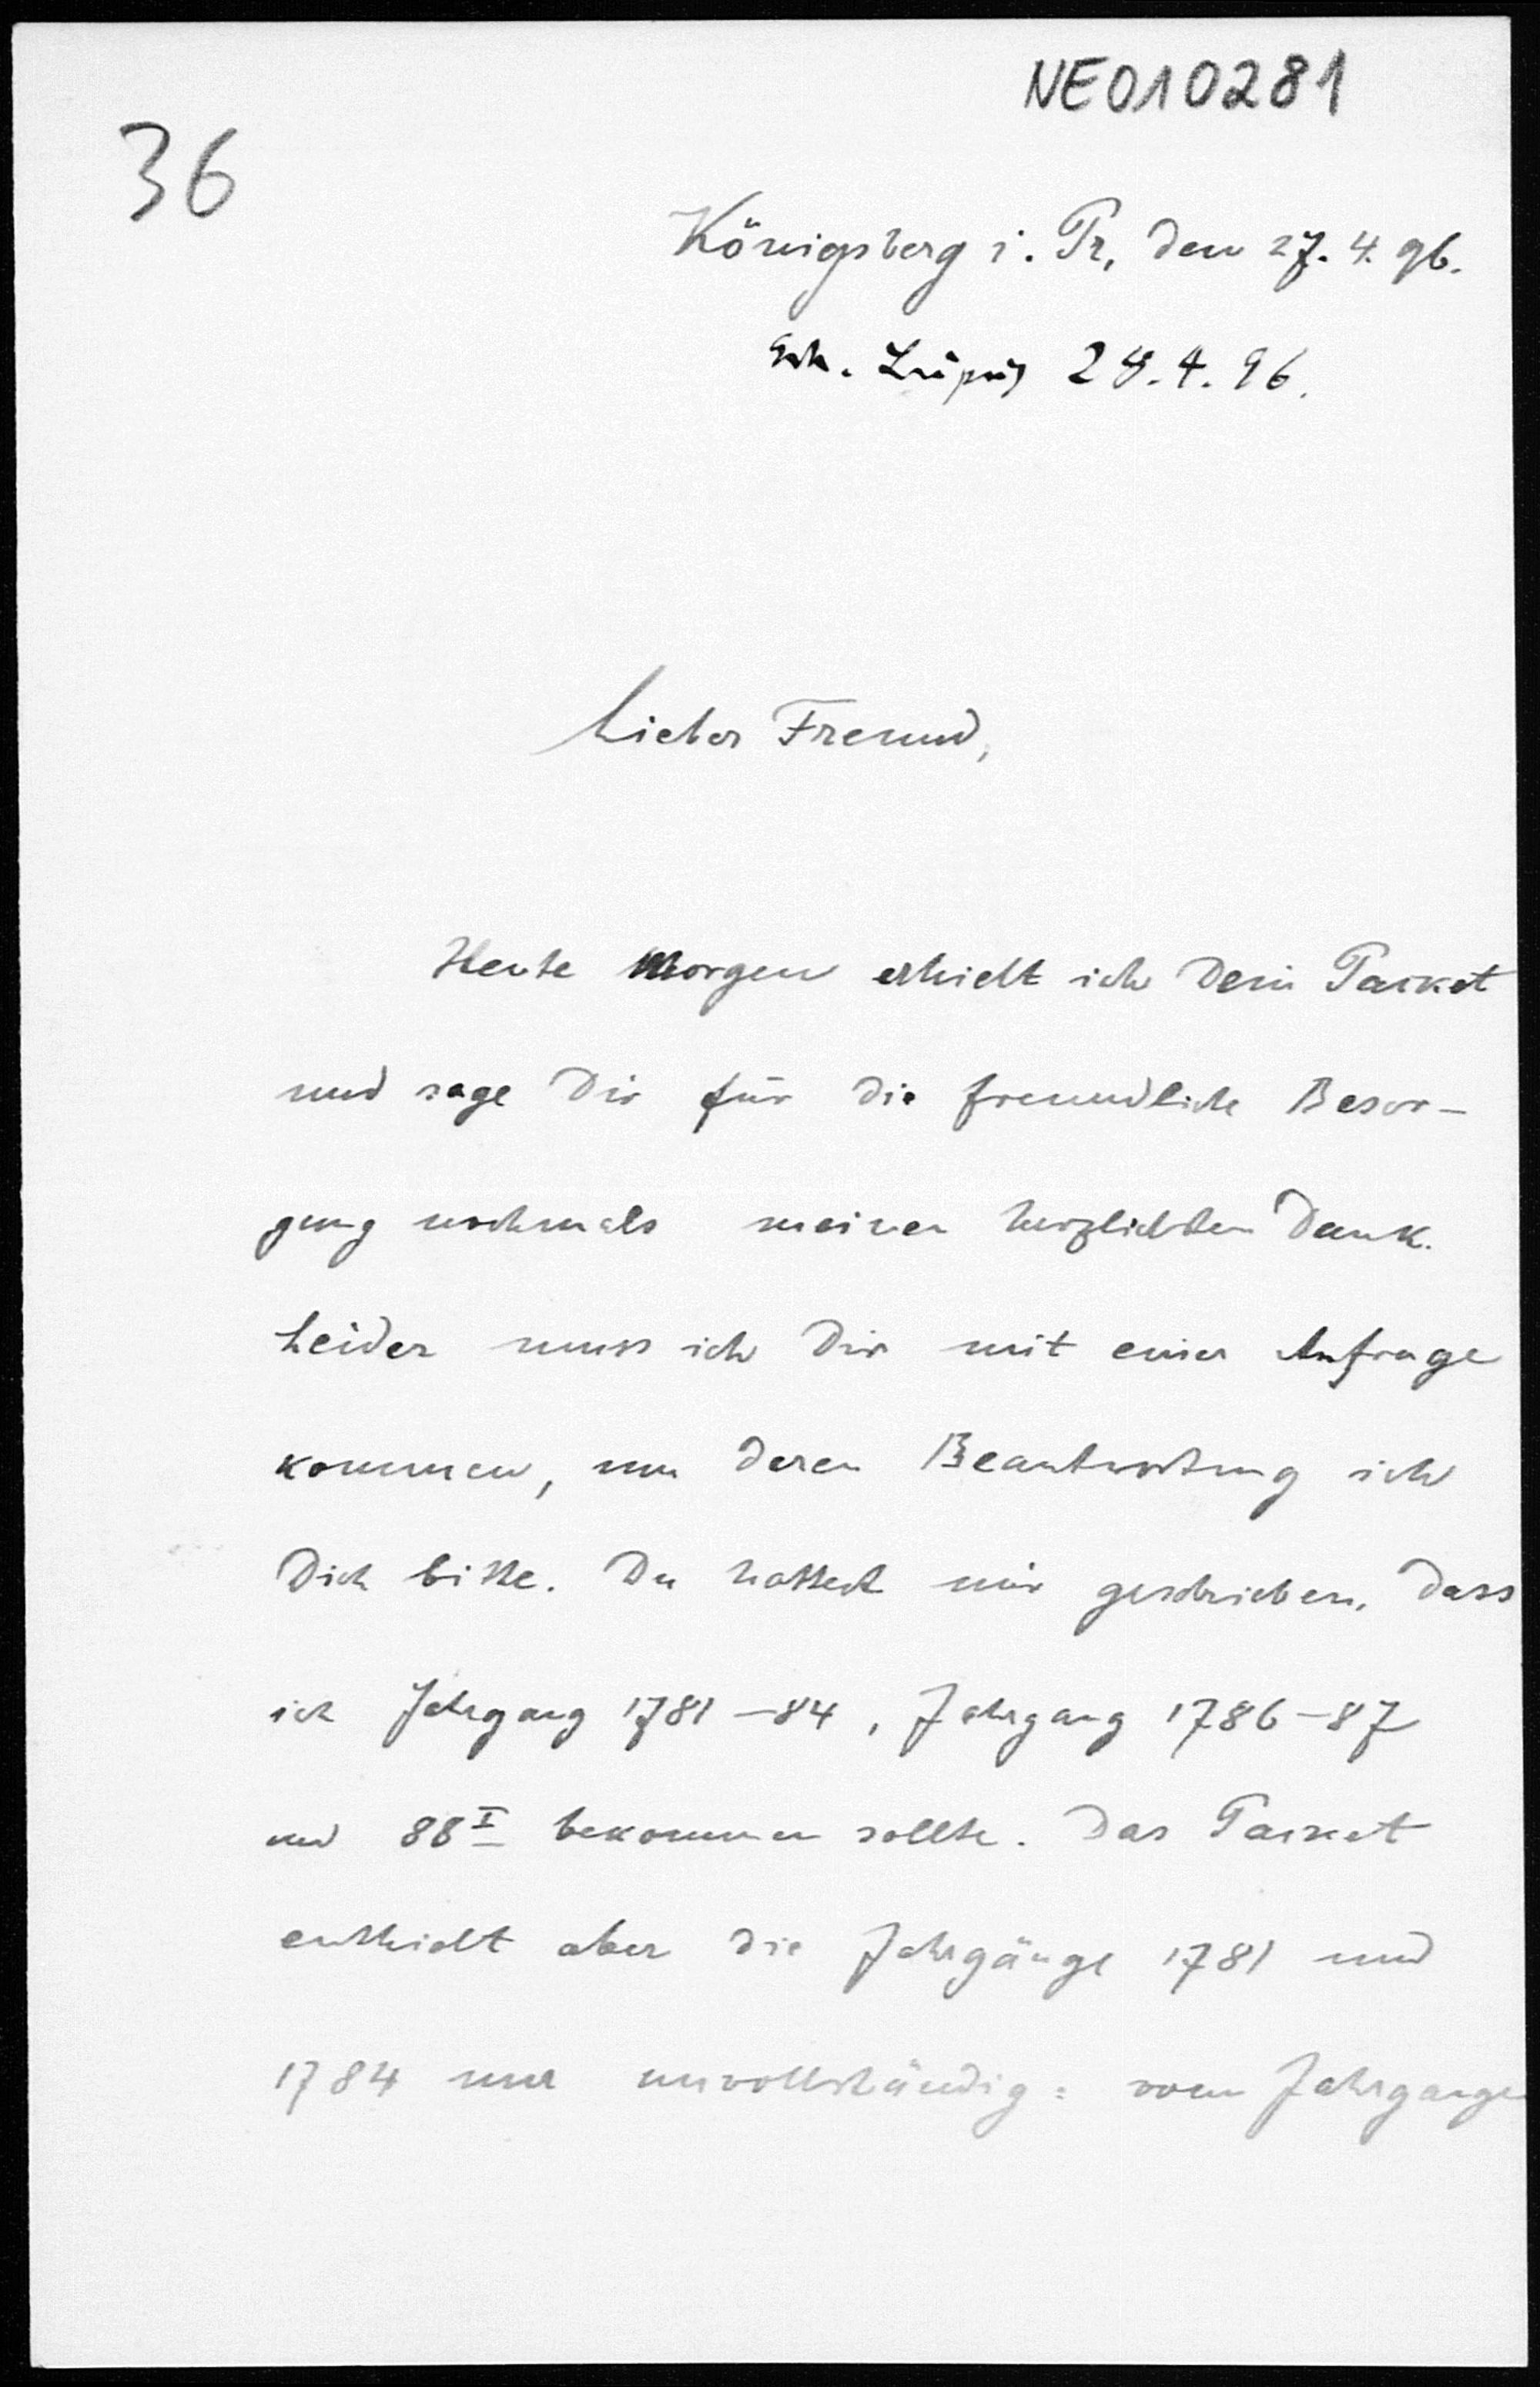 NE010281
36
Königsberg i. Pr, den 27. 4. 96.
Erh. Leipzig 28. 4. 96.
Lieber Freund,
Heute Morgen erhielt ich Dein Packet
und sage Dir für die freundliche Besor-
gung nochmals meinen herzlichsten Dank.
Leider muss ich Dir mit einer Anfrage
kommen, um deren Beantwortung ich
Dich bitte. Du hattest mir geschrieben, dass
ich Jahrgang 1781-84, Jahrgang 1786-87
und 88 I bekommen sollte. Das Packet
enthielt aber die Jahrgänge 1781 und
1784 nur unvollständig: vom Jahrgange